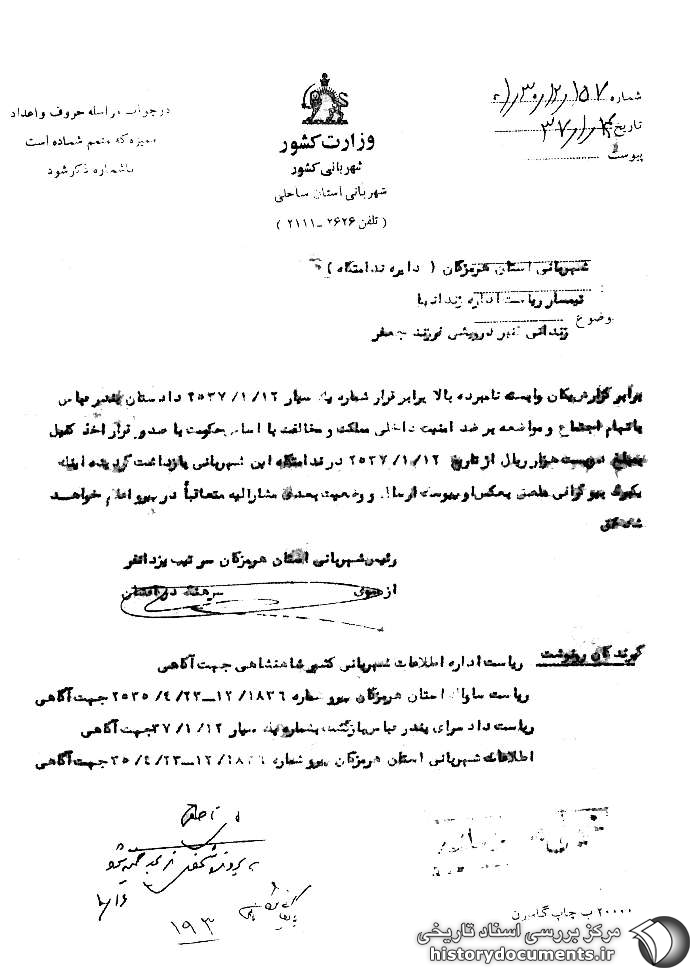 شماره ۱۵۷/۱۲/۳۰/۱
تاریخ
پیوست
وزارت کشور
شهربانی کشور
شهربانی استان ساحلی
( تلفن ۲۶۲۶ - ۲۱۱۱ )
در جواب مراسله حروف و اعداد
ممیزه که متمم شماره است
با شماره ذکر شود
شهربانی استان هرمزگان ( دایره ندامتگاه )
تیمسار ریاست اداره زندانها
موضوع زندانی اکبر درویشی فرزند جعفر
برابر گزارش یگان وابسته نامبرده بالا برابر قرار شماره یک سیار ۲۵۳۷/۱/۱۲ دادستان بندر عباس
باتهام اجتماع و مواضعه بر ضد امنیت داخلی مملکت و مخالفت با اساس حکومت با صدور قرار اخذ کفیل
بمبلغ دویست هزار ریال از تاریخ ۲۵۳۷/۱/۱۲ در ندامتگاه این شهربانی بازداشت گردیده اینک
یکبرگ بیوگرافی ملصق بعکس او بپیوست ارسال و وضعیت بعدی مشارالیه متعاقباً در پیرو اعلام خواهد
شد
رئیس شهربانی استان هرمزگان سرتیپ یزدانفر
از سوی سرهنگ درافشان
گیرندگان رونوشت
ریاست اداره اطلاعات شهربانی کشور شاهنشاهی جهت آگاهی
ریاست ساواک استان هرمزگان پیرو شماره ۱۲/۱۸۳۶-۲۵۳۵/۴/۲۳ جهت آگاهی
ریاست دادسرای بندر عباس بازگشت بشماره یک سیار ۳۷/۱/۱۲ جهت آگاهی
اطلاعات شهربانی استان هرمزگان پیرو شماره ۱۲/۱۸۳۶-۳۵/۴/۲۳ جهت آگاهی
۱۹۳
۲۰۰۰۰ ب چاپ گامبرن
مرکز بررسی اسناد تاریخی
historydocuments.ir